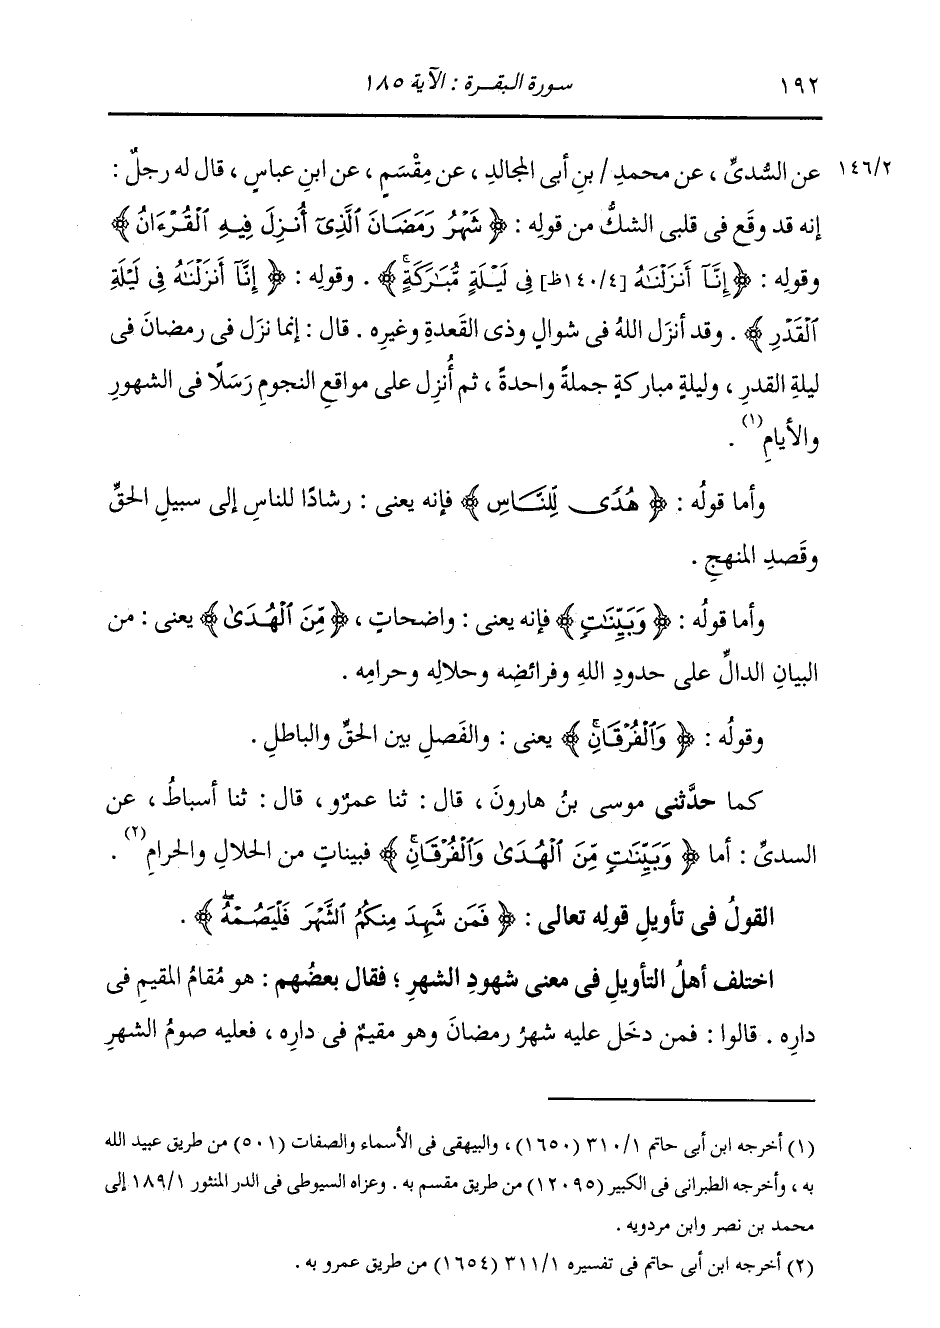 ١٩٢ سورة البقرة : الآية ١٨٥
١٤٦/٢ عن السُّدىِّ ، عن محمدِ / بنِ أبى المجالدِ ، عن مِقْسَمٍ ، عن ابنِ عباسٍ ، قال له رجلٌ :
إنه قد وقَع فى قلبى الشكُّ من قولِه : ﴿ شَهْرُ رَمَضَانَ ٱلَّذِىٓ أُنزِلَ فِيهِ ٱلْقُرْءَانُ ﴾
وقولِه : ﴿ إِنَّآ أَنزَلْنَٰهُ [١٤٠/٤ظ] فِى لَيْلَةٍ مُّبَٰرَكَةٍ ﴾ . وقولِه : ﴿ إِنَّآ أَنزَلْنَٰهُ فِى لَيْلَةِ
ٱلْقَدْرِ ﴾ . وقد أنزَل اللهُ فى شوالٍ وذى القَعدةِ وغيرِه . قال : إنما نزَل فى رمضانَ فى
ليلةِ القدرِ ، وليلةٍ مباركةٍ جملةً واحدةً ، ثم أُنزِل على مواقعِ النجومِ رَسَلًا فى الشهورِ
والأيامِ (١) .
وأما قولُه : ﴿ هُدًى لِّلنَّاسِ ﴾ فإنه يعنى : رشادًا للناسِ إلى سبيلِ الحقِّ
وقَصدِ المنهجِ .
وأما قولُه : ﴿ وَبَيِّنَٰتٍ ﴾ فإنه يعنى : واضحاتٍ ، ﴿ مِّنَ ٱلْهُدَىٰ ﴾ يعنى : من
البيانِ الدالِّ على حدودِ اللهِ وفرائضِه وحلالِه وحرامِه .
وقولُه : ﴿ وَٱلْفُرْقَانِ ﴾ يعنى : والفَصلِ بين الحقِّ والباطلِ .
كما حدَّثنى موسى بنُ هارونَ ، قال : ثنا عمرٌو ، قال : ثنا أسباطُ ، عن
السدىِّ : أما ﴿ وَبَيِّنَٰتٍ مِّنَ ٱلْهُدَىٰ وَٱلْفُرْقَانِ ﴾ فبيناتٍ من الحلالِ والحرامِ (٢) .
القولُ فى تأويلِ قولِه تعالى : ﴿ فَمَن شَهِدَ مِنكُمُ ٱلشَّهْرَ فَلْيَصُمْهُ ﴾ .
اختلف أهلُ التأويلِ فى معنى شهودِ الشهرِ ؛ فقال بعضُهم : هو مُقامُ المقيمِ فى
دارِه . قالوا : فمن دخَل عليه شهرُ رمضانَ وهو مقيمٌ فى دارِه ، فعليه صومُ الشهرِ
(١) أخرجه ابن أبى حاتم ٣١٠/١ (١٦٥٠) ، والبيهقى فى الأسماء والصفات (٥٠١) من طريق عبيد الله
به ، وأخرجه الطبرانى فى الكبير (١٢٠٩٥) من طريق مقسم به . وعزاه السيوطى فى الدر المنثور ١٨٩/١ إلى
محمد بن نصر وابن مردويه .
(٢) أخرجه ابن أبى حاتم فى تفسيره ٣١١/١ (١٦٥٤) من طريق عمرو به .